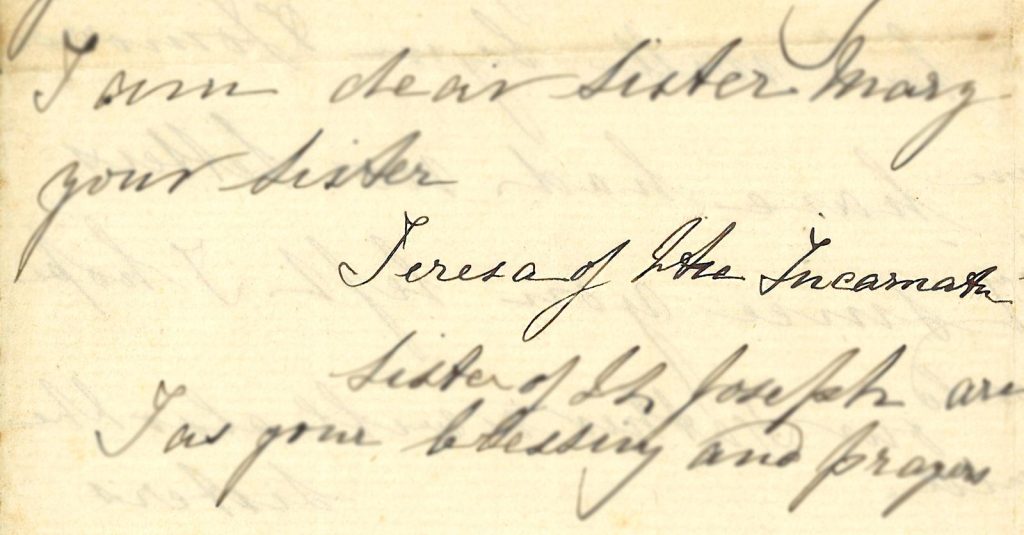 I am dear Sister Mary
your Sister
Teresa of the Incarnatn
Sister of St Joseph are
I as your blessing and prayers